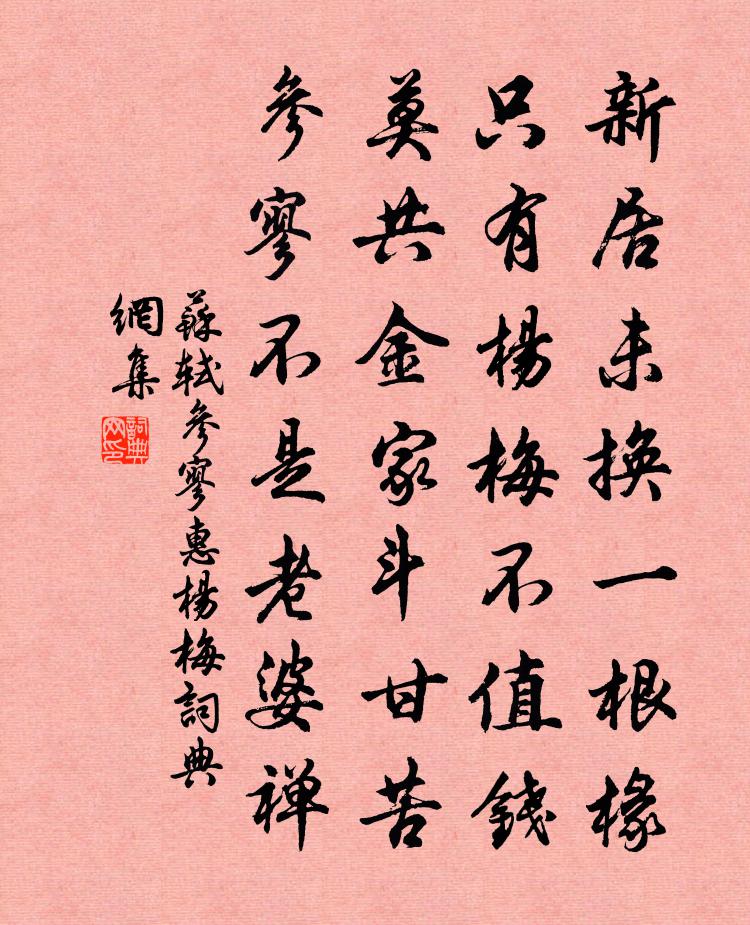 新居未換一根椽
只有楊梅不值錢
莫共金家斗甘苦
參寥不是老婆禅
蘇軾參寥惠楊梅詞典
網集
詞典
网印